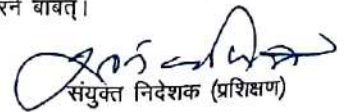 रने बाबत्।
संयुक्त निदेशक (प्रशिक्षण)